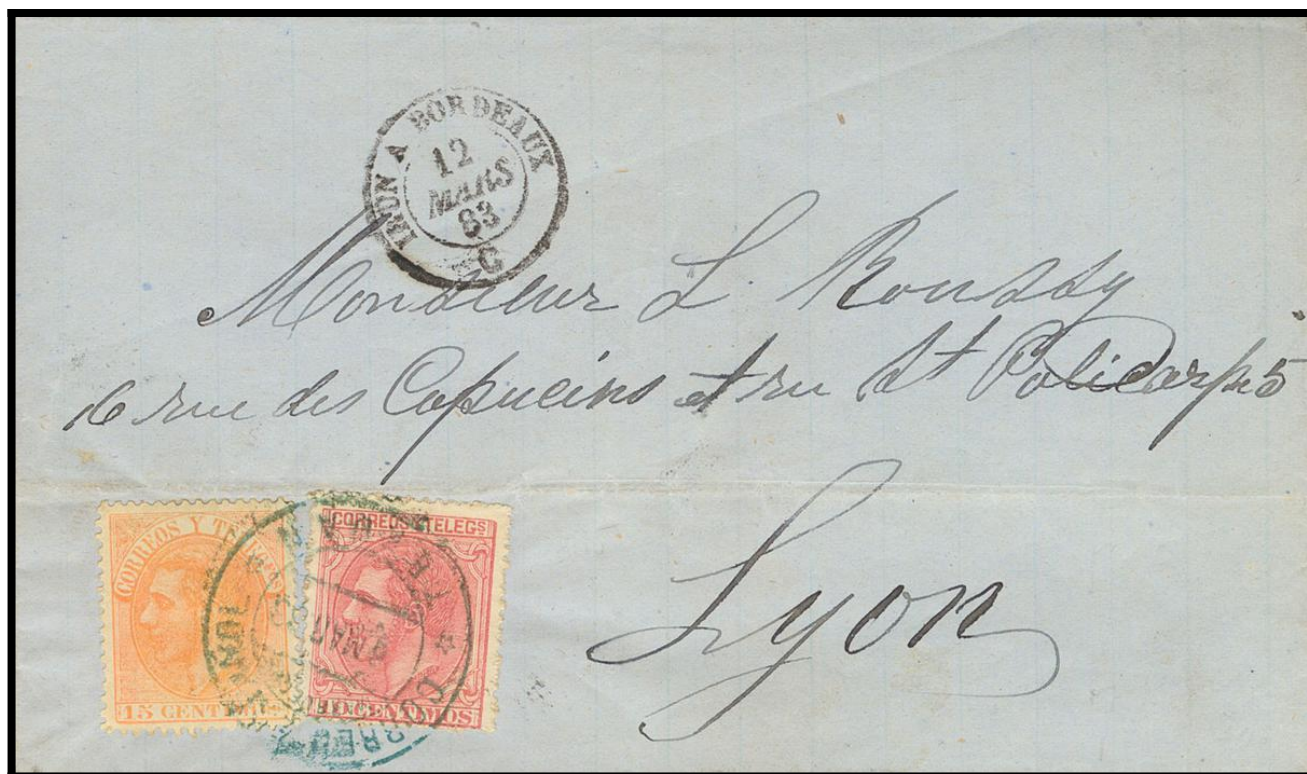 IRUN A BORDEAUX
12
MARS
83
Monsieur L. Roussy
6 rue des Capucins et rue St Policarpe 5
Lyon
CORREOS Y TE
15 CENT
CORREOS Y TELEGS
10 CENTIMOS
MAR